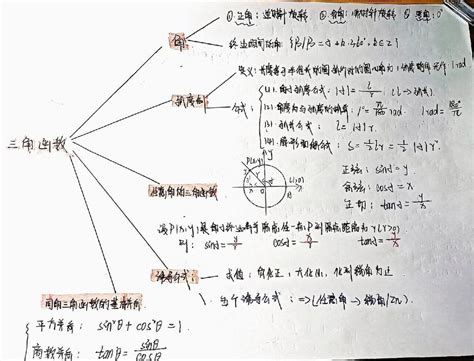 三角函数
角
①正角：逆时针旋转 ②负角：顺时针旋转 ③零角：0°
终边相同的角：{β|β=α+k·360°，k∈Z}
弧度制
定义：长度等于半径长的圆弧所对的圆心角为1弧度的角 记作 1rad
公式：
(1). 角α弧度公式：|α|=l/r (l→弧长)
(2). 角度与弧度的换算：1°=π/180 rad 1rad=180°/π
(3). 弧长公式：l=|α|r.
(4). 扇形面积公式：S=1/2lr=1/2|α|r².
任意角的三角函数
P(x,y)
y
x
正弦：sinα=y
余弦：cosα=x
正切：tanα=y/x
设P(x,y)是角α终边上异于原点任一点，P到原点距离为r(r>0)
则：sinα=y/r cosα=x/r tanα=y/x
诱导公式：
求值：负化正，大化小，化到锐角为止
同角三角函数的基本关系
平方关系：sin²θ+cos²θ=1.
商数关系：tanθ=sinθ/cosθ